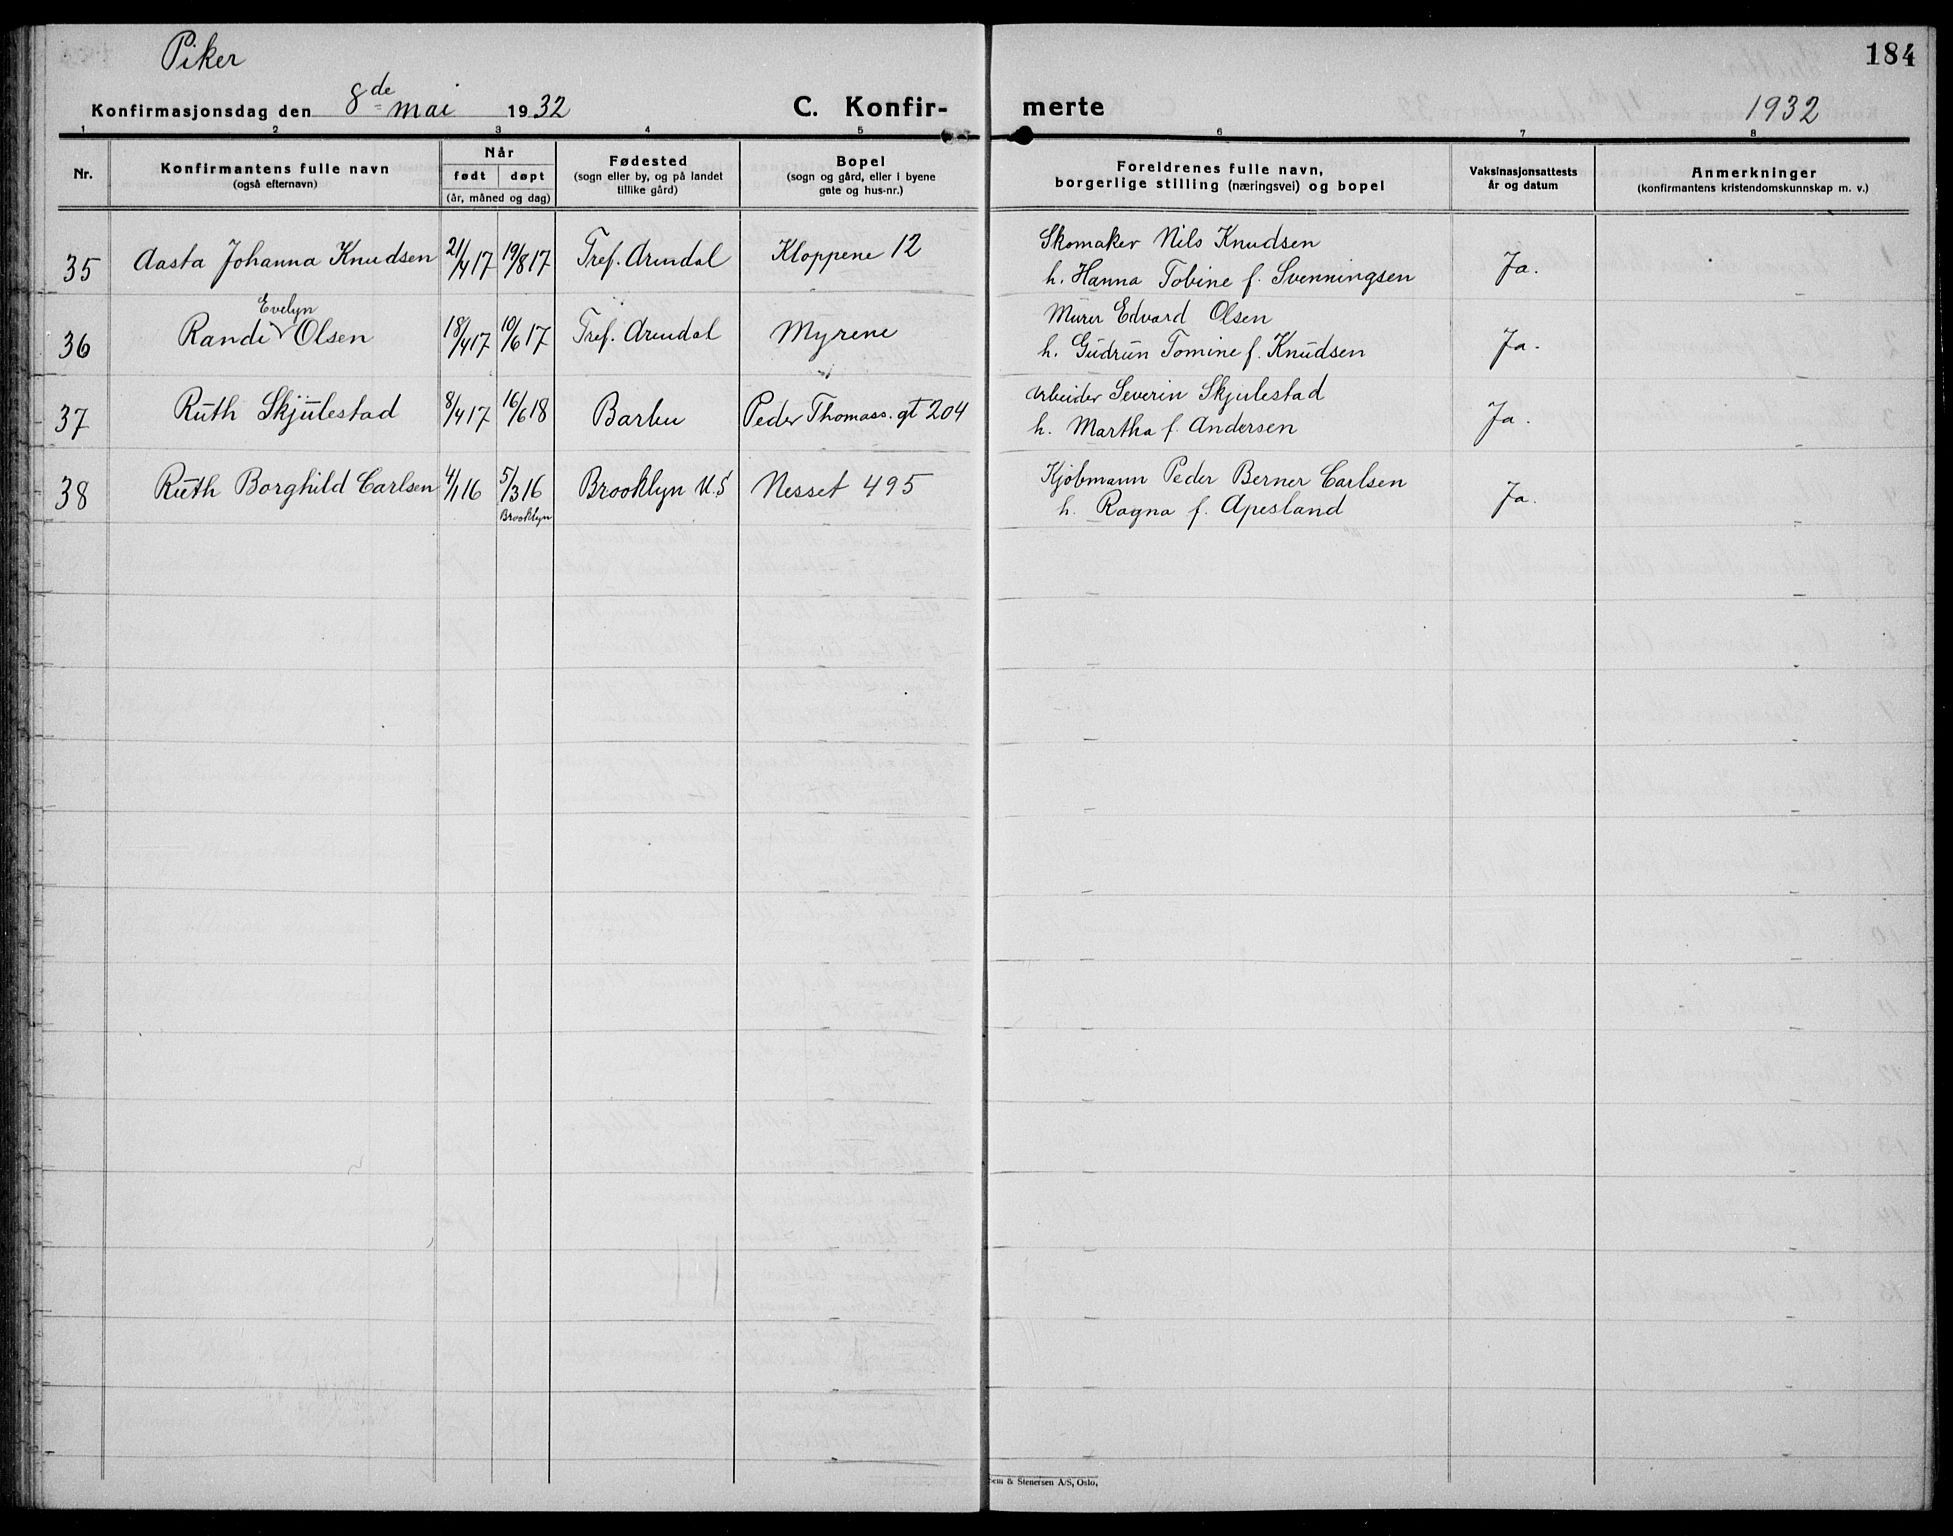 Piker
184
Konfirmasjonsdag den 8de mai 1932
C. Konfir-
merte
1932
1 2 3 4 5 6 7 8
Nr.
Konfirmantens fulle navn
(også efternavn)
Når
født døpt
(år, måned og dag)
Fødested
(sogn eller by, og på landet
tillike gård)
Bopel
(sogn og gård, eller i byene
gate og hus-nr.)
Foreldrenes fulle navn,
borgerlige stilling (næringsvei) og bopel
Vaksinasjonsattests
år og datum
Anmerkninger
(konfirmantens kristendomskunnskap m. v.)
35 Aasta Johanna Knudsen 21/4 17 19/8 17 Tref. Arendal Kloppene 12 Skomaker Nils Knudsen
h. Hanna Tobine f. Svenningsen Ja.
Evelyn
36 Randi Olsen 18/4 17 10/6 17 Tref. Arendal Myrene Murer Edvard Olsen
h. Gudrun Tomine f. Knudsen Ja.
37 Ruth Skjulestad 8/4 17 16/6 18 Barbu Peder Thomass. gt 204 Arbeider Severin Skjulestad
h. Martha f. Andersen Ja.
38 Ruth Borghild Carlsen 4/1 16 5/3 16 Brooklyn U.S Nesset 495 Kjøbmann Peder Berner Carlsen
Brooklyn
h. Ragna f. Apesland Ja.
Sem & Stenersen A/S, Oslo.